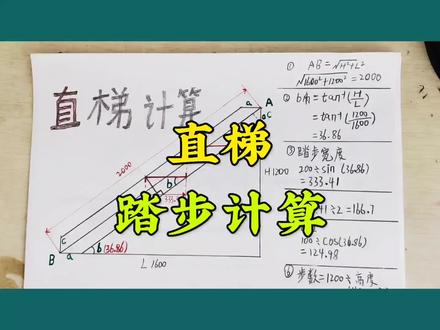 直梯计算
直梯
踏步计算
2000
a
A
c
H1200
b
333.
c
B
a
b(36.86)
L 1600
① AB=√H²+L²
√1600²+1200²=2000
②b角=tan⁻¹(H/L)
=tan⁻¹(1200/1600)
=36.86
③踏步宽度
200÷sin(36.86)
=333.41
÷2=166.7
100÷cos(36.86)
=124.98
⑥步数=1200÷高度